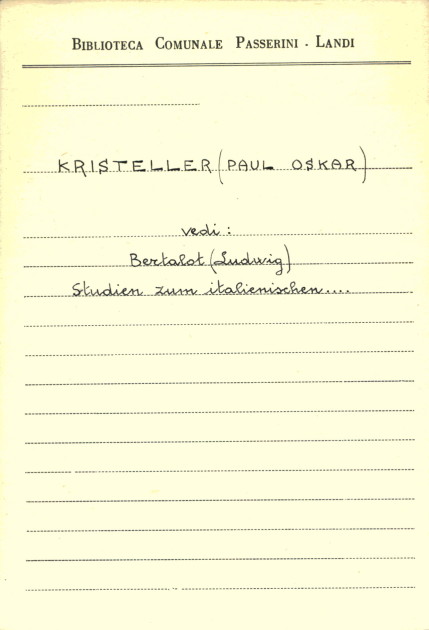 BIBLIOTECA COMUNALE PASSERINI - LANDI
KRISTELLER (PAUL OSKAR)
vedi :
Bertalot (Ludwig)
Studien zum italienischen....